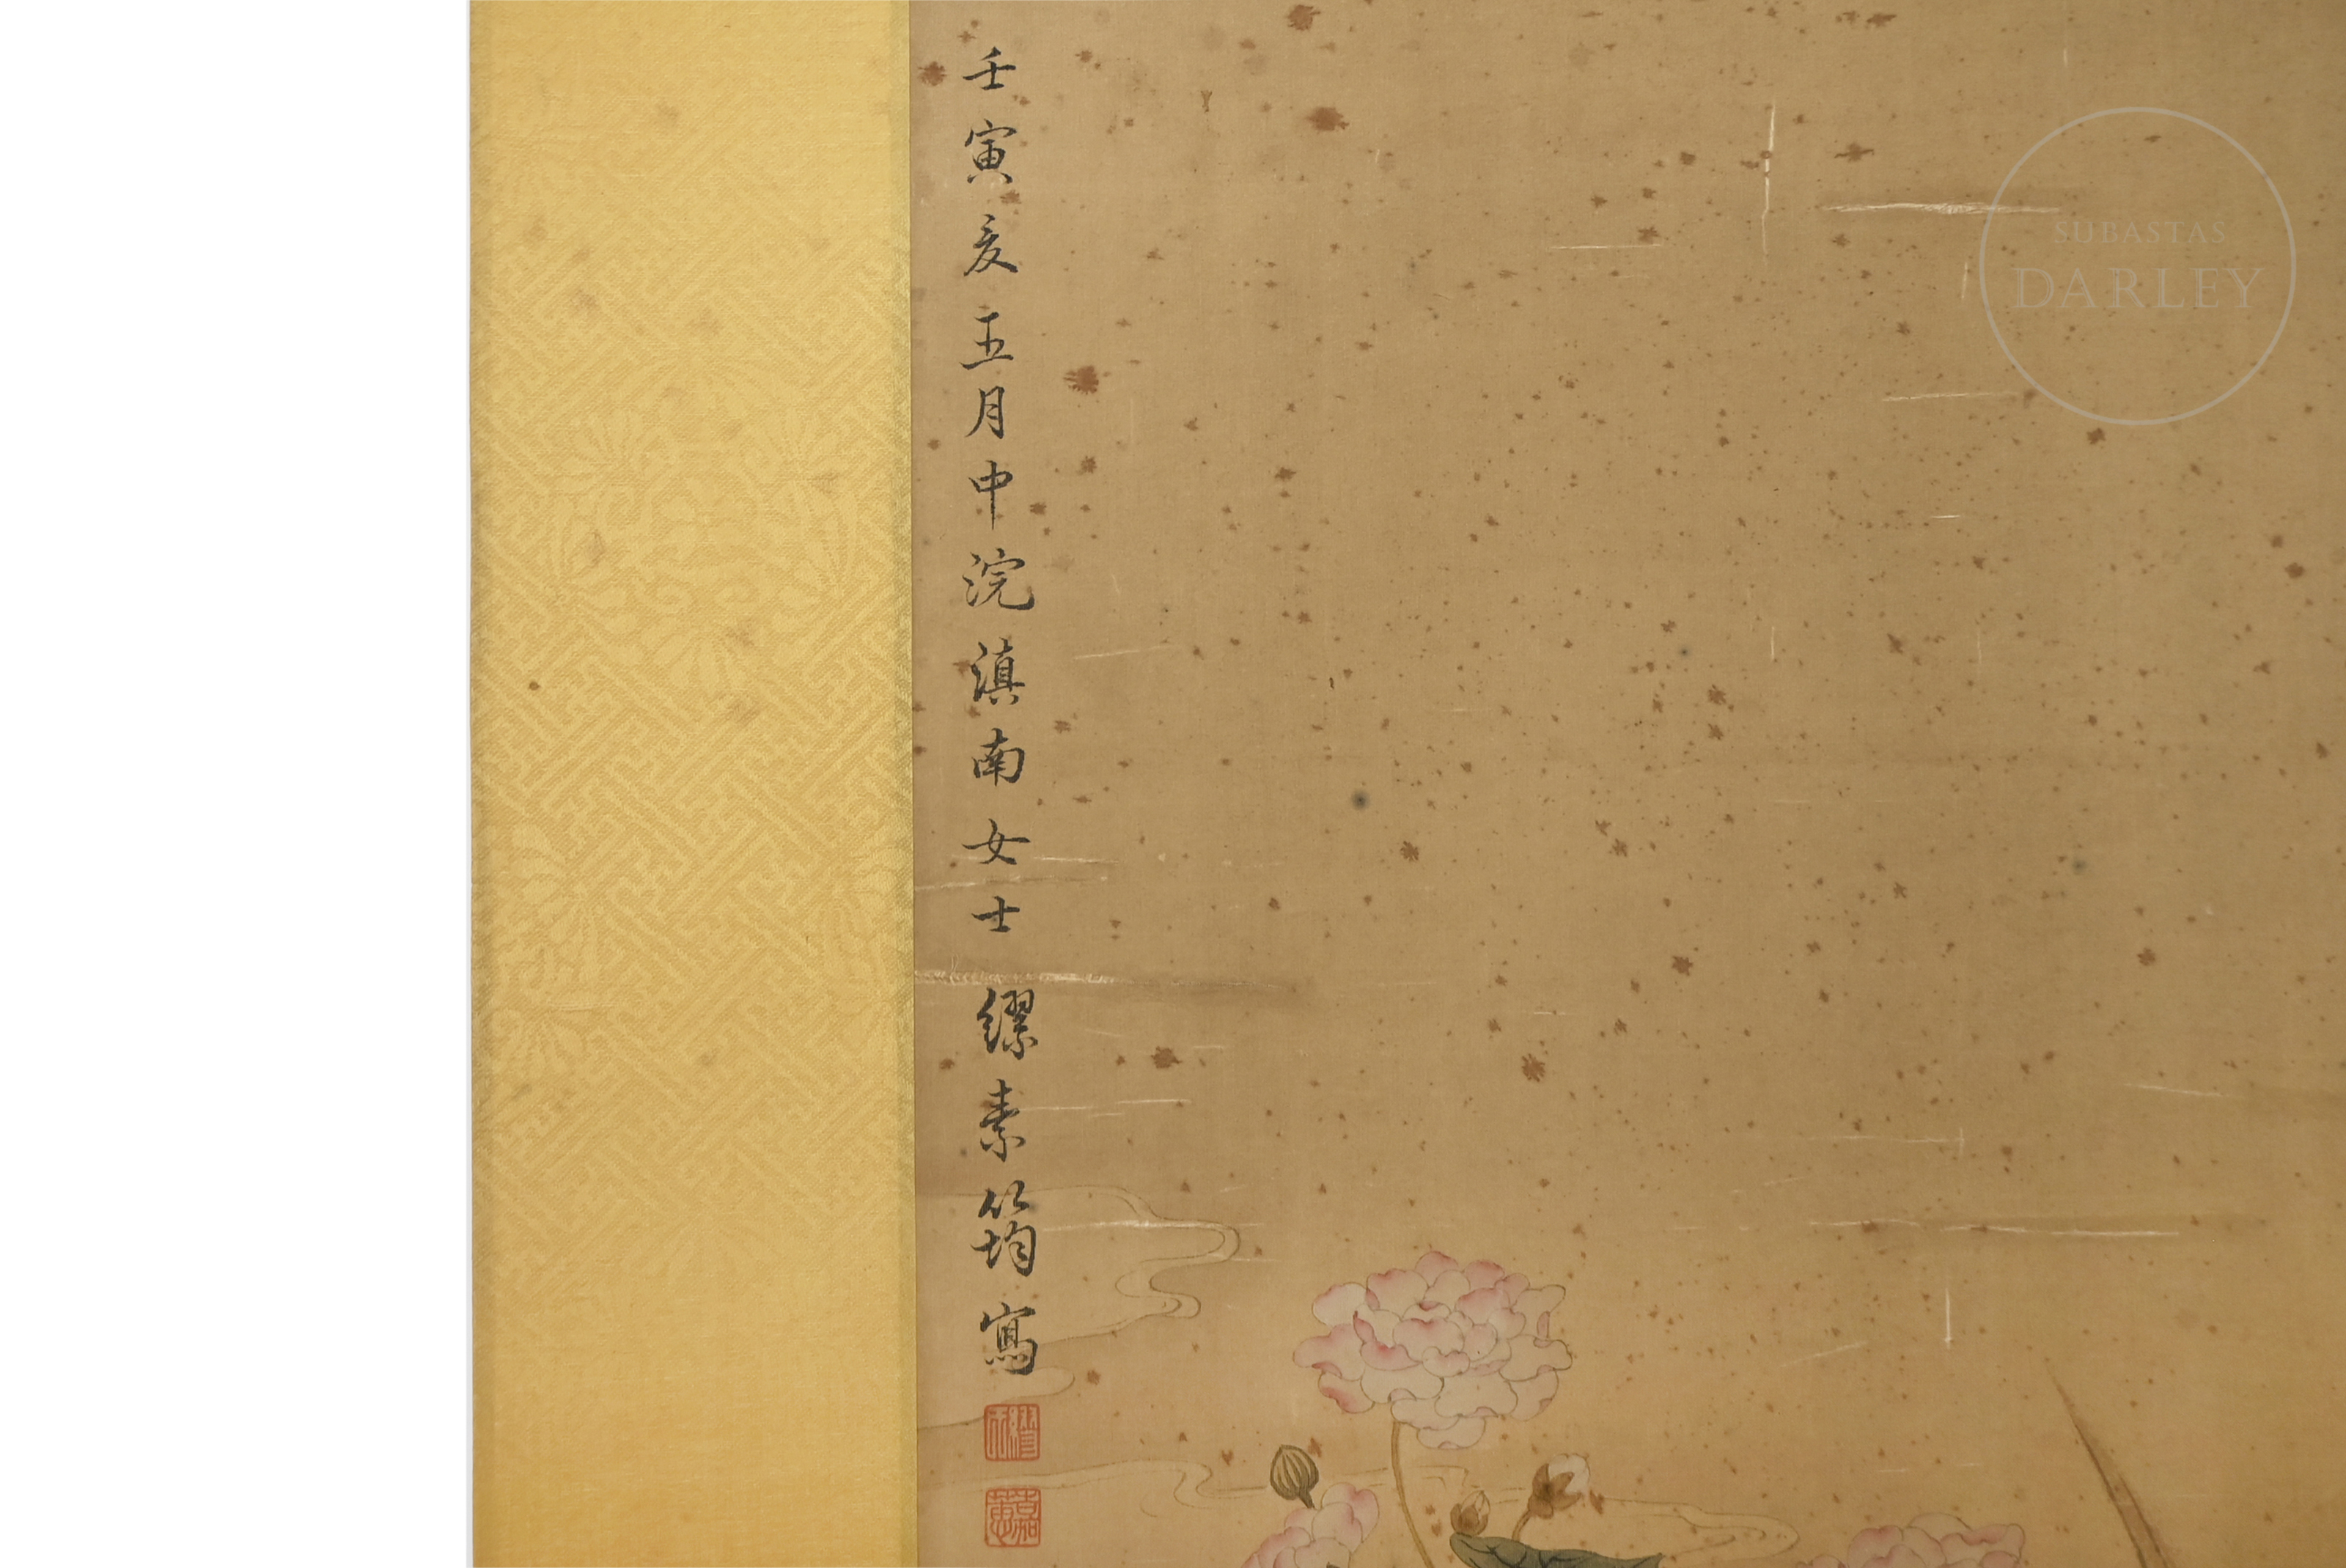 壬寅夏五月中浣滇南女士繆素筠寫
嘉蕙
SUBASTAS
DARLEY